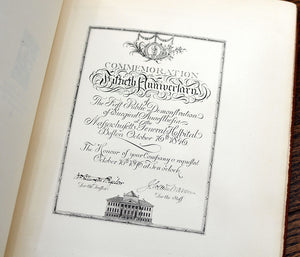 COMMEMORATION
of the
Fiftieth Anniversary
of
The First Public Demonstration
of Surgical Anæsthesia
Massachusetts General Hospital
Boston October 16th 1896
The Honour of your Company is requested
October 16th 1896 at ten o'clock
for the Trustees
for the Staff